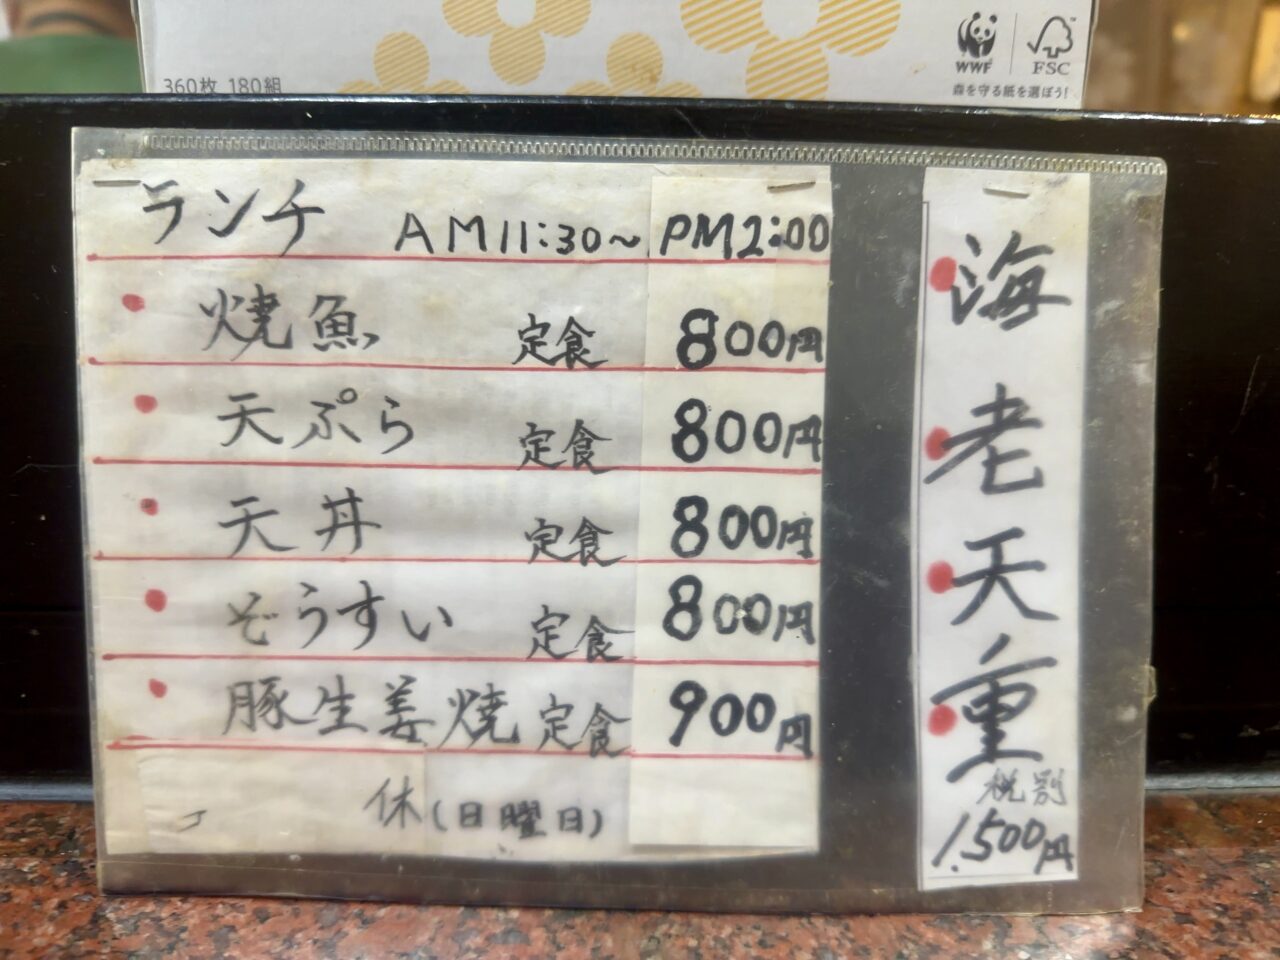 360枚 180組
WWF
FSC
森を守る紙を選ぼう!
ランチ AM11:30~PM2:00
焼魚 定食 800円
天ぷら 定食 800円
天丼 定食 800円
ぞうすい 定食 800円
豚生姜焼定食 900円
休(日曜日)
海老天重
税別
1.500円